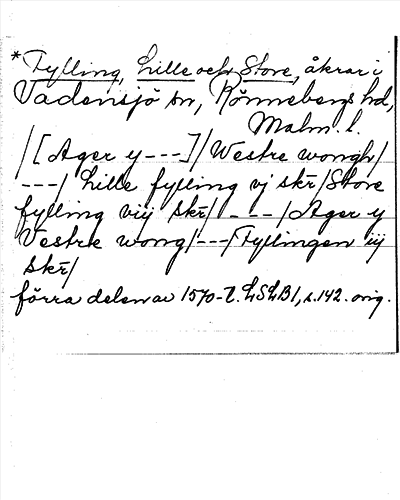 *Fylling, Lille och Store, åkrar i
Vadensjö sn, Rönnebergs hd,
Malm. l.
/[Ager y ---]/ Westre wongh/
---/ Lille fylling vj skr/ Store
fylling viij skr/ --- / Ager y
Vestre wong/ ---/ Fyllingen iij
skr/
förra delen av 1570-t. LSLB1, s. 142. orig.